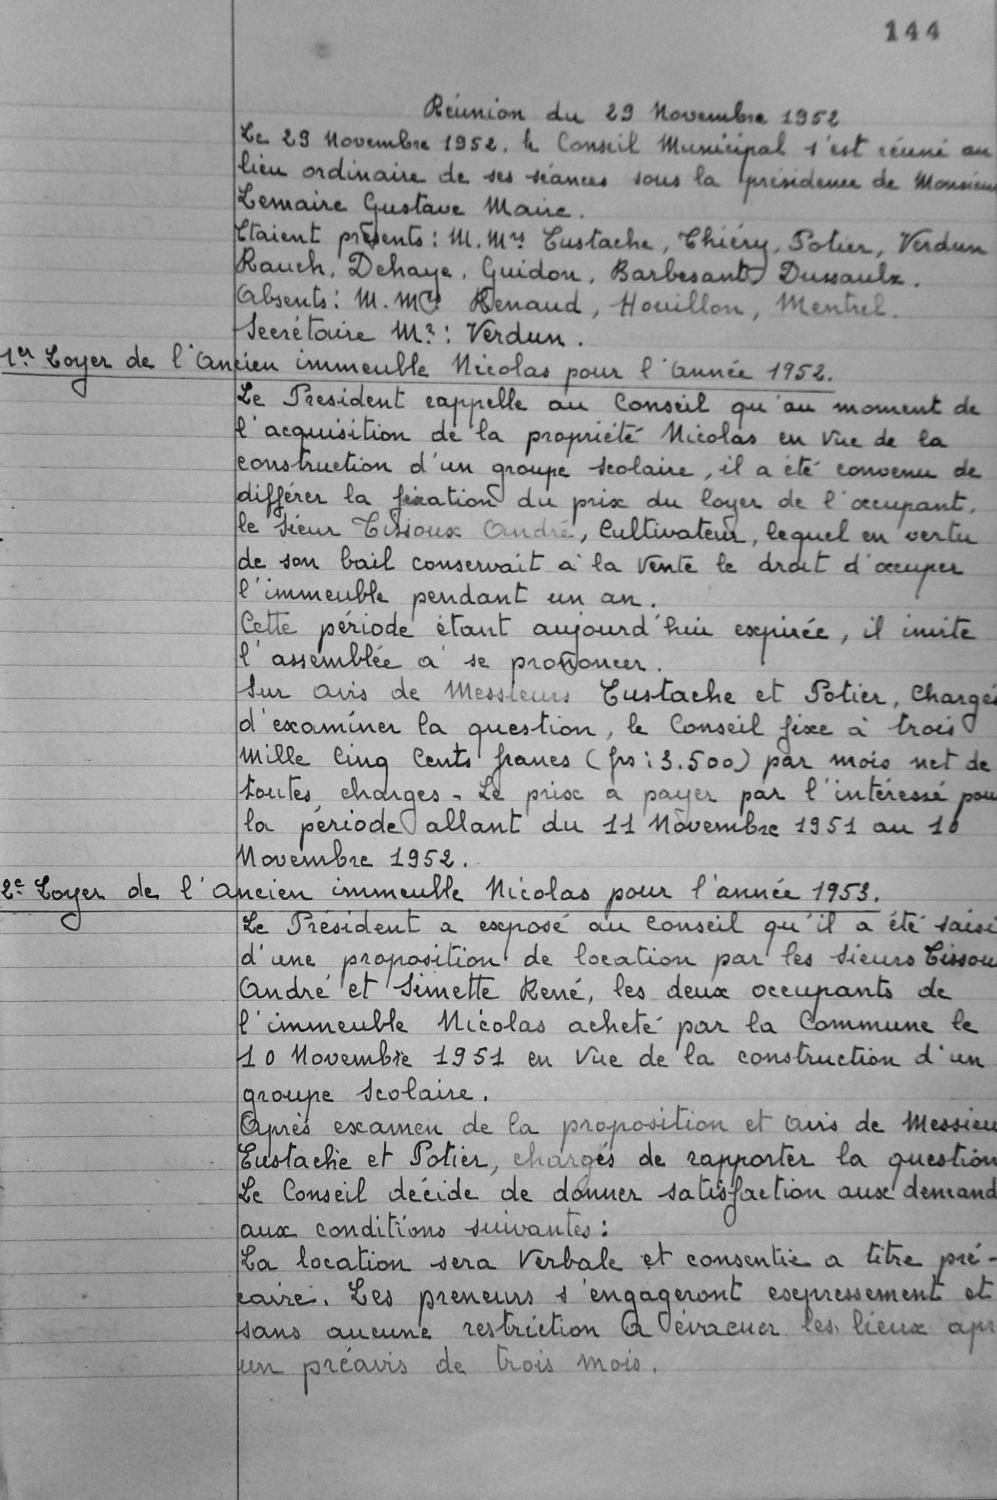 144
Réunion du 29 Novembre 1952
Le 29 Novembre 1952, le Conseil Municipal s'est réuni au
lieu ordinaire de ses séances sous la présidence de Monsieur
Lemaire Gustave Maire.
Etaient présents : M. Mrs Eustache, Thiéry, Potier, Verdun
Rauch, Dehaye, Guidon, Barbesant, Dussaulx.
Absents : M. Mrs Renaud, Houillon, Mentrel.
Secrétaire Mr : Verdun.
1er Loyer de l'Ancien immeuble Nicolas pour l'année 1952.
Le President rappelle au Conseil qu'au moment de
l'acquisition de la propriété Nicolas en vue de la
construction d'un groupe scolaire, il a été convenu de
différer la fixation du prix du loyer de l'occupant,
le Sieur Tissoux André, Cultivateur, lequel en vertu
de son bail conservait à la vente le droit d'occuper
l'immeuble pendant un an.
Cette période étant aujourd'hui expirée, il invite
l'assemblée à se prononcer.
Sur avis de Messieurs Eustache et Potier, Chargés
d'examiner la question, le Conseil fixe à trois
Mille Cinq Cents francs (frs : 3.500) par mois net de
toutes charges - Le prix a payer par l'intéressé pour
la période allant du 11 Novembre 1951 au 10
Novembre 1952.
2e Loyer de l'ancien immeuble Nicolas pour l'année 1953.
Le Président a exposé au Conseil qu'il a été saisi
d'une proposition de location par les Sieurs Tissou
André et Simette René, les deux occupants de
l'immeuble Nicolas acheté par la Commune le
10 Novembre 1951 en vue de la construction d'un
groupe Scolaire.
Après examen de la proposition et avis de Messieu
Eustache et Potier, chargés de rapporter la question
Le Conseil décide de donner satisfaction aux demand
aux conditions suivantes :
La location sera Verbale et consentie a titre pré-
caire. Les preneurs s'engageront expressement et
sans aucune restriction à évacuer les lieux apr
un préavis de trois mois.